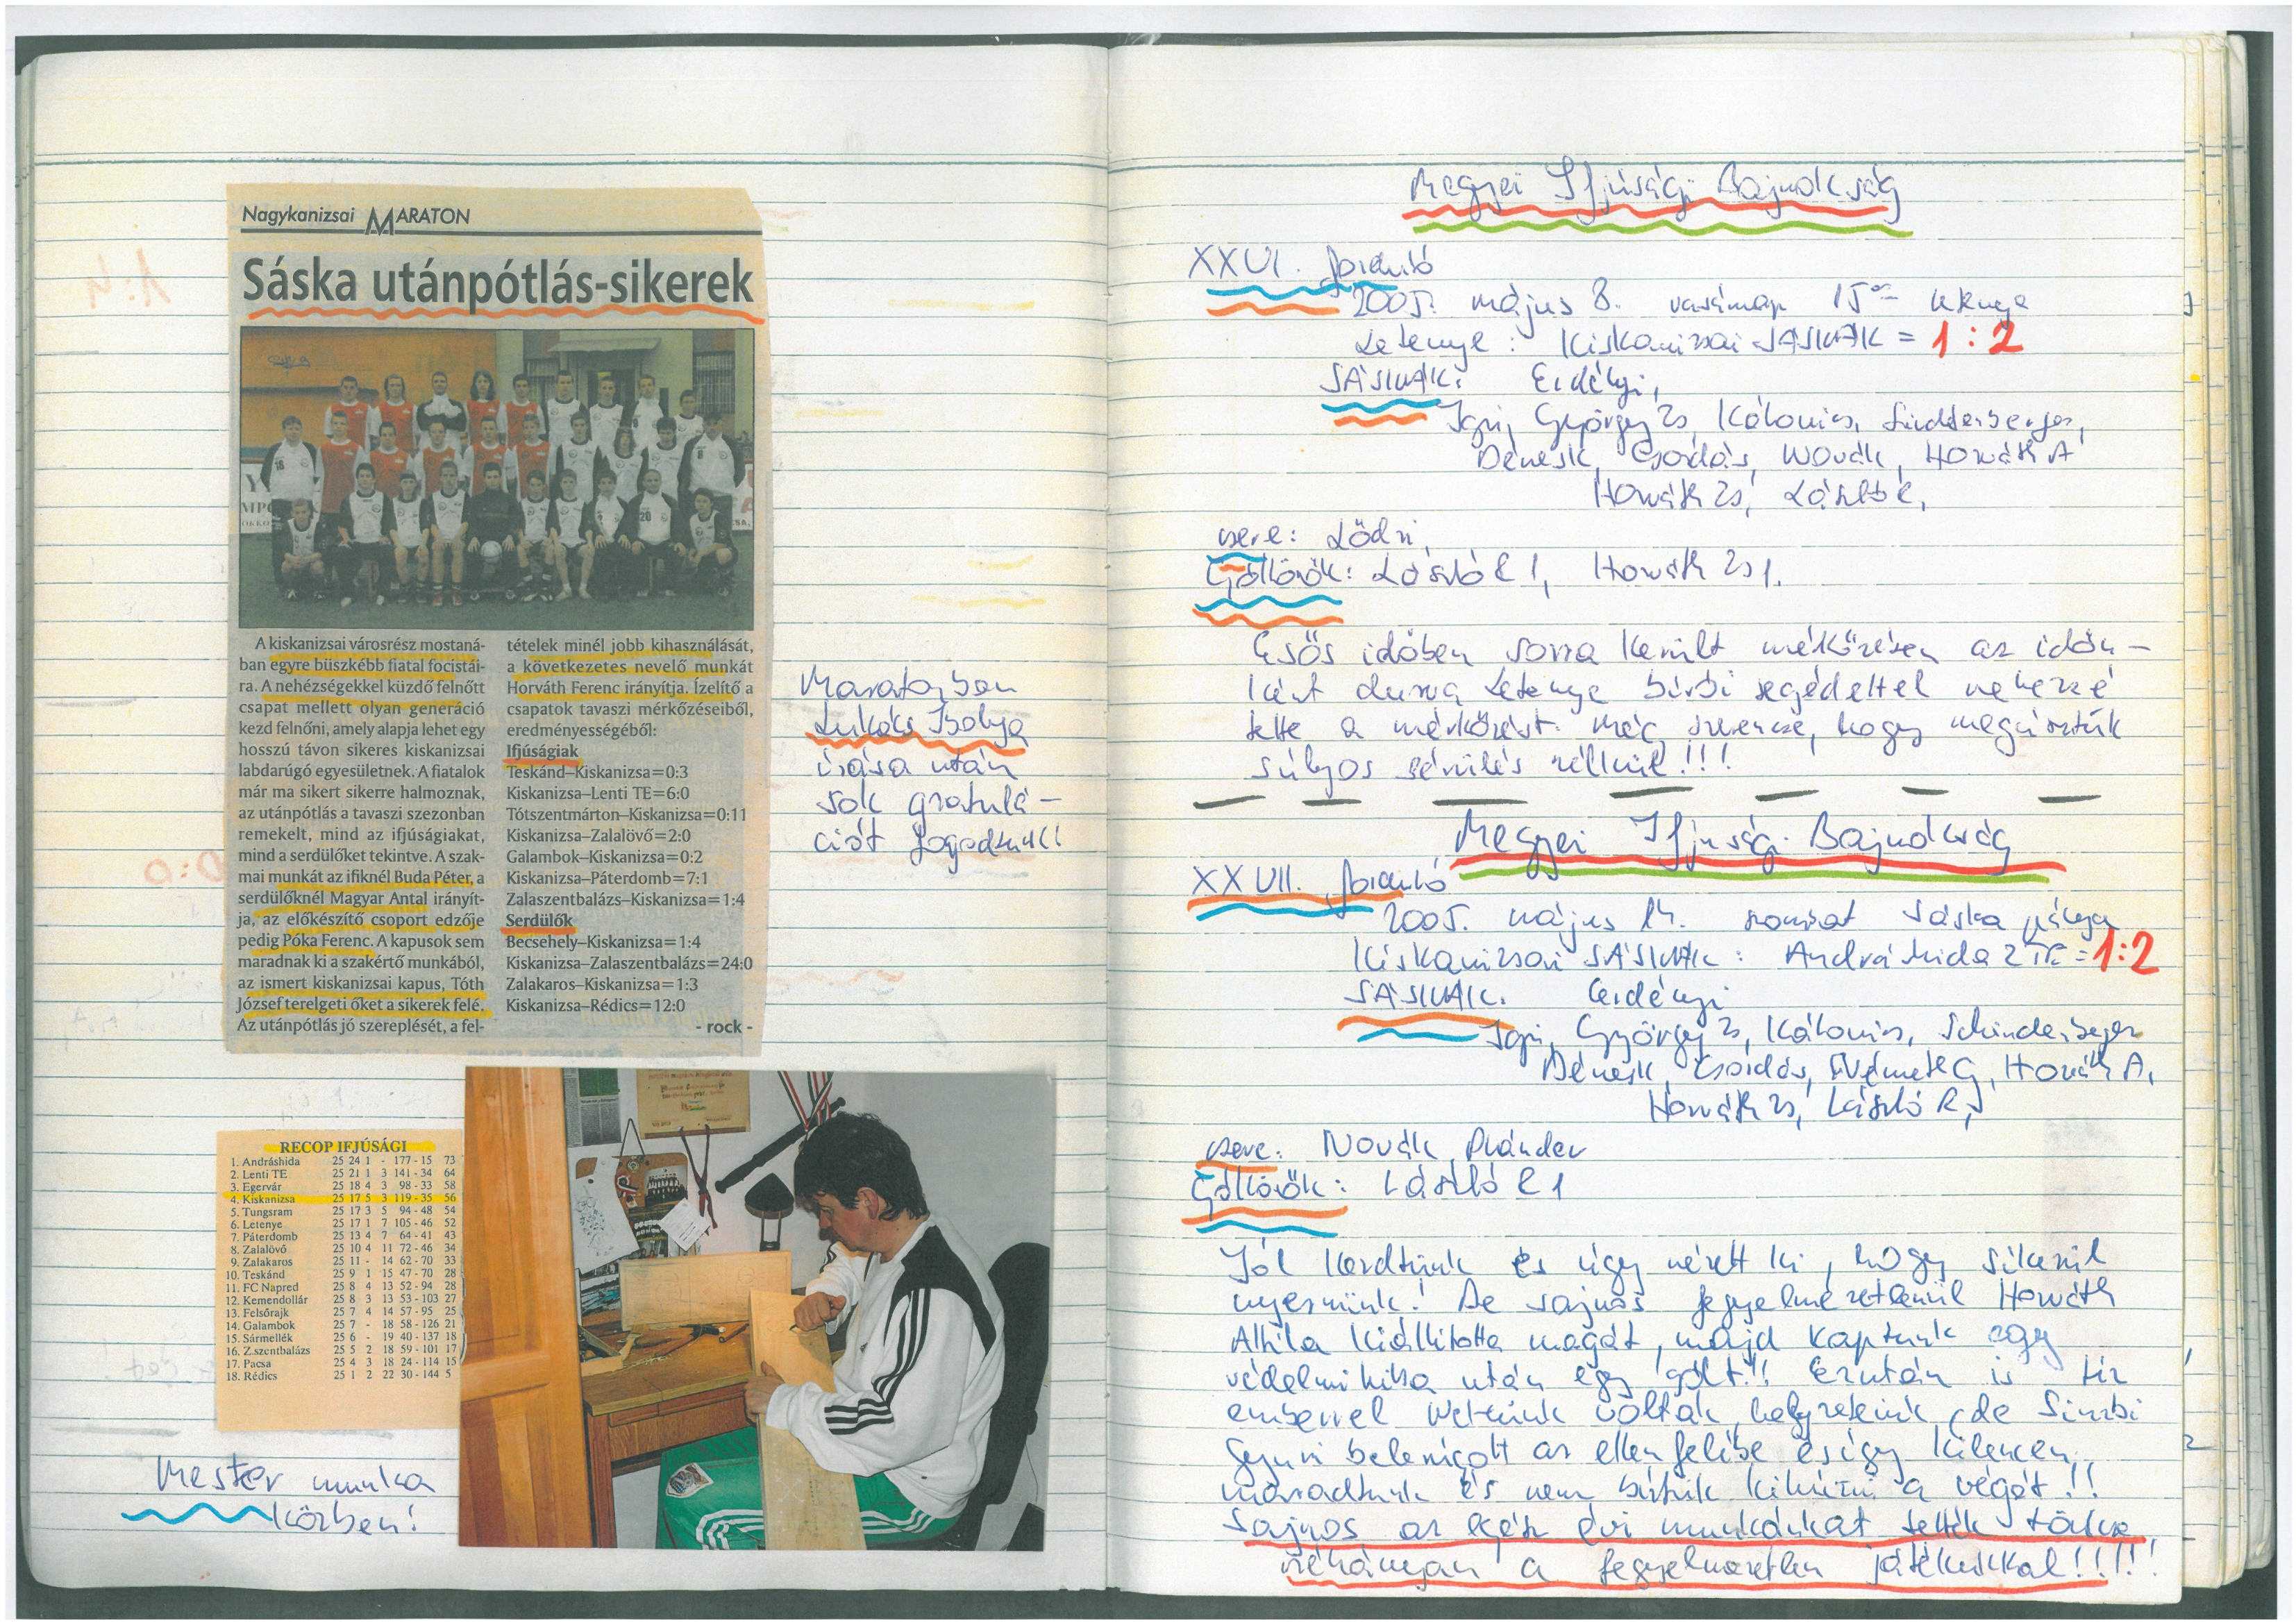 Nagykanizsai MARATON
Sáska utánpótlás-sikerek
A kiskanizsai városrész mostaná-
ban egyre büszkébb fiatal focistái-
ra. A nehézségekkel küzdő felnőtt
csapat mellett olyan generáció
kezd felnőni, amely alapja lehet egy
hosszú távon sikeres kiskanizsai
labdarúgó egyesületnek. A fiatalok
már ma sikert sikerre halmoznak,
az utánpótlás a tavaszi szezonban
remekelt, mind az ifjúságiakat,
mind a serdülőket tekintve. A szak-
mai munkát az ifiknél Buda Péter, a
serdülőknél Magyar Antal irányít-
ja, az előkészítő csoport edzője
pedig Póka Ferenc. A kapusok sem
maradnak ki a szakértő munkából,
az ismert kiskanizsai kapus, Tóth
József terelgeti őket a sikerek felé.
Az utánpótlás jó szereplését, a fel-
tételek minél jobb kihasználását,
a következetes nevelő munkát
Horváth Ferenc irányítja. Ízelítő a
csapatok tavaszi mérkőzéseiből,
eredményességéből:
Ifjúságiak
Teskánd–Kiskanizsa=0:3
Kiskanizsa–Lenti TE=6:0
Tótszentmárton–Kiskanizsa=0:11
Kiskanizsa–Zalalövő=2:0
Galambok–Kiskanizsa=0:2
Kiskanizsa–Páterdomb=7:1
Zalaszentbalázs–Kiskanizsa=1:4
Serdülők
Becsehely–Kiskanizsa=1:4
Kiskanizsa–Zalaszentbalázs=24:0
Zalakaros–Kiskanizsa=1:3
Kiskanizsa–Rédics=12:0
- rock -
Maratonban
Lukács Ibolya
írása után
sok gratulá-
ciót fogadtunk!
RECOP IFJÚSÁGI
1. Andráshida 25 24 1 - 177-15 73
2. Lenti TE 25 21 1 3 141-34 64
3. Egervár 25 18 4 3 98-33 58
4. Kiskanizsa 25 17 5 3 119-35 56
5. Tungsram 25 17 3 5 94-48 54
6. Letenye 25 17 1 7 105-46 52
7. Páterdomb 25 13 4 7 64-41 43
8. Zalalövő 25 10 4 11 72-46 34
9. Zalakaros 25 11 - 14 62-70 33
10. Teskánd 25 9 1 15 47-70 28
11. FC Napred 25 8 4 13 52-94 28
12. Kemendollár 25 8 3 13 53-103 27
13. Felsőrajk 25 7 4 14 57-95 25
14. Galambok 25 7 - 18 58-126 21
15. Sármellék 25 6 - 19 40-137 18
16. Z.szentbalázs 25 5 2 18 59-101 17
17. Pacsa 25 4 3 18 24-114 15
18. Rédics 25 1 2 22 30-144 5
Mester munka
közben!
Megyei Ifjúsági Bajnokság
XXVI. forduló
2005. május 8. vasárnap 15⁰⁰ Letenye
Letenye : Kiskanizsai SÁSKÁK = 1:2
SÁSKÁK: Erdélyi,
Igri, György Zs, Kálovics, Sindelberger,
Dénes K, Csordás, Novák, Horváth A
Horváth Zs, László R,
csere: Lődri,
Góllövők: László R 1, Horváth Zs 1.
Esős időben sorra került mérkőzésen az időn-
ként durva Letenye bírói segédlettel nehezzé
tette a mérkőzést. Még szerencse, hogy megúsztuk
súlyos sérülés nélkül!!!
Megyei Ifjúsági Bajnokság
XXVII. forduló
2005. május 14. szombat Sáska pálya
Kiskanizsai SÁSKÁK : Andráshida ZTE = 1:2
SÁSKÁK: Erdélyi
Igri, György Zs, Kálovics, Schindelberger
Dénes K, Csordás, Németh G, Horváth A,
Horváth Zs, László R,
csere: Novák, Plánder
Góllövők: László R 1
Jól kezdtünk és úgy nézett ki, hogy sikerül
nyernünk! De sajnos fegyelmezetlenül Horváth
Attila kiállította magát, majd kaptunk egy
védelmi hiba után egy gólt!! Ezután is tíz
emberrel nekünk voltak helyzeteink, de Simbi
Gyuri belerúgott az ellenfélbe és így kilencen
maradtunk és nem bírtuk kihúzni a végét!!
Sajnos az egész évi munkánkat tették tönkre
néhányan a fegyelmezetlen játékukkal!!!!!